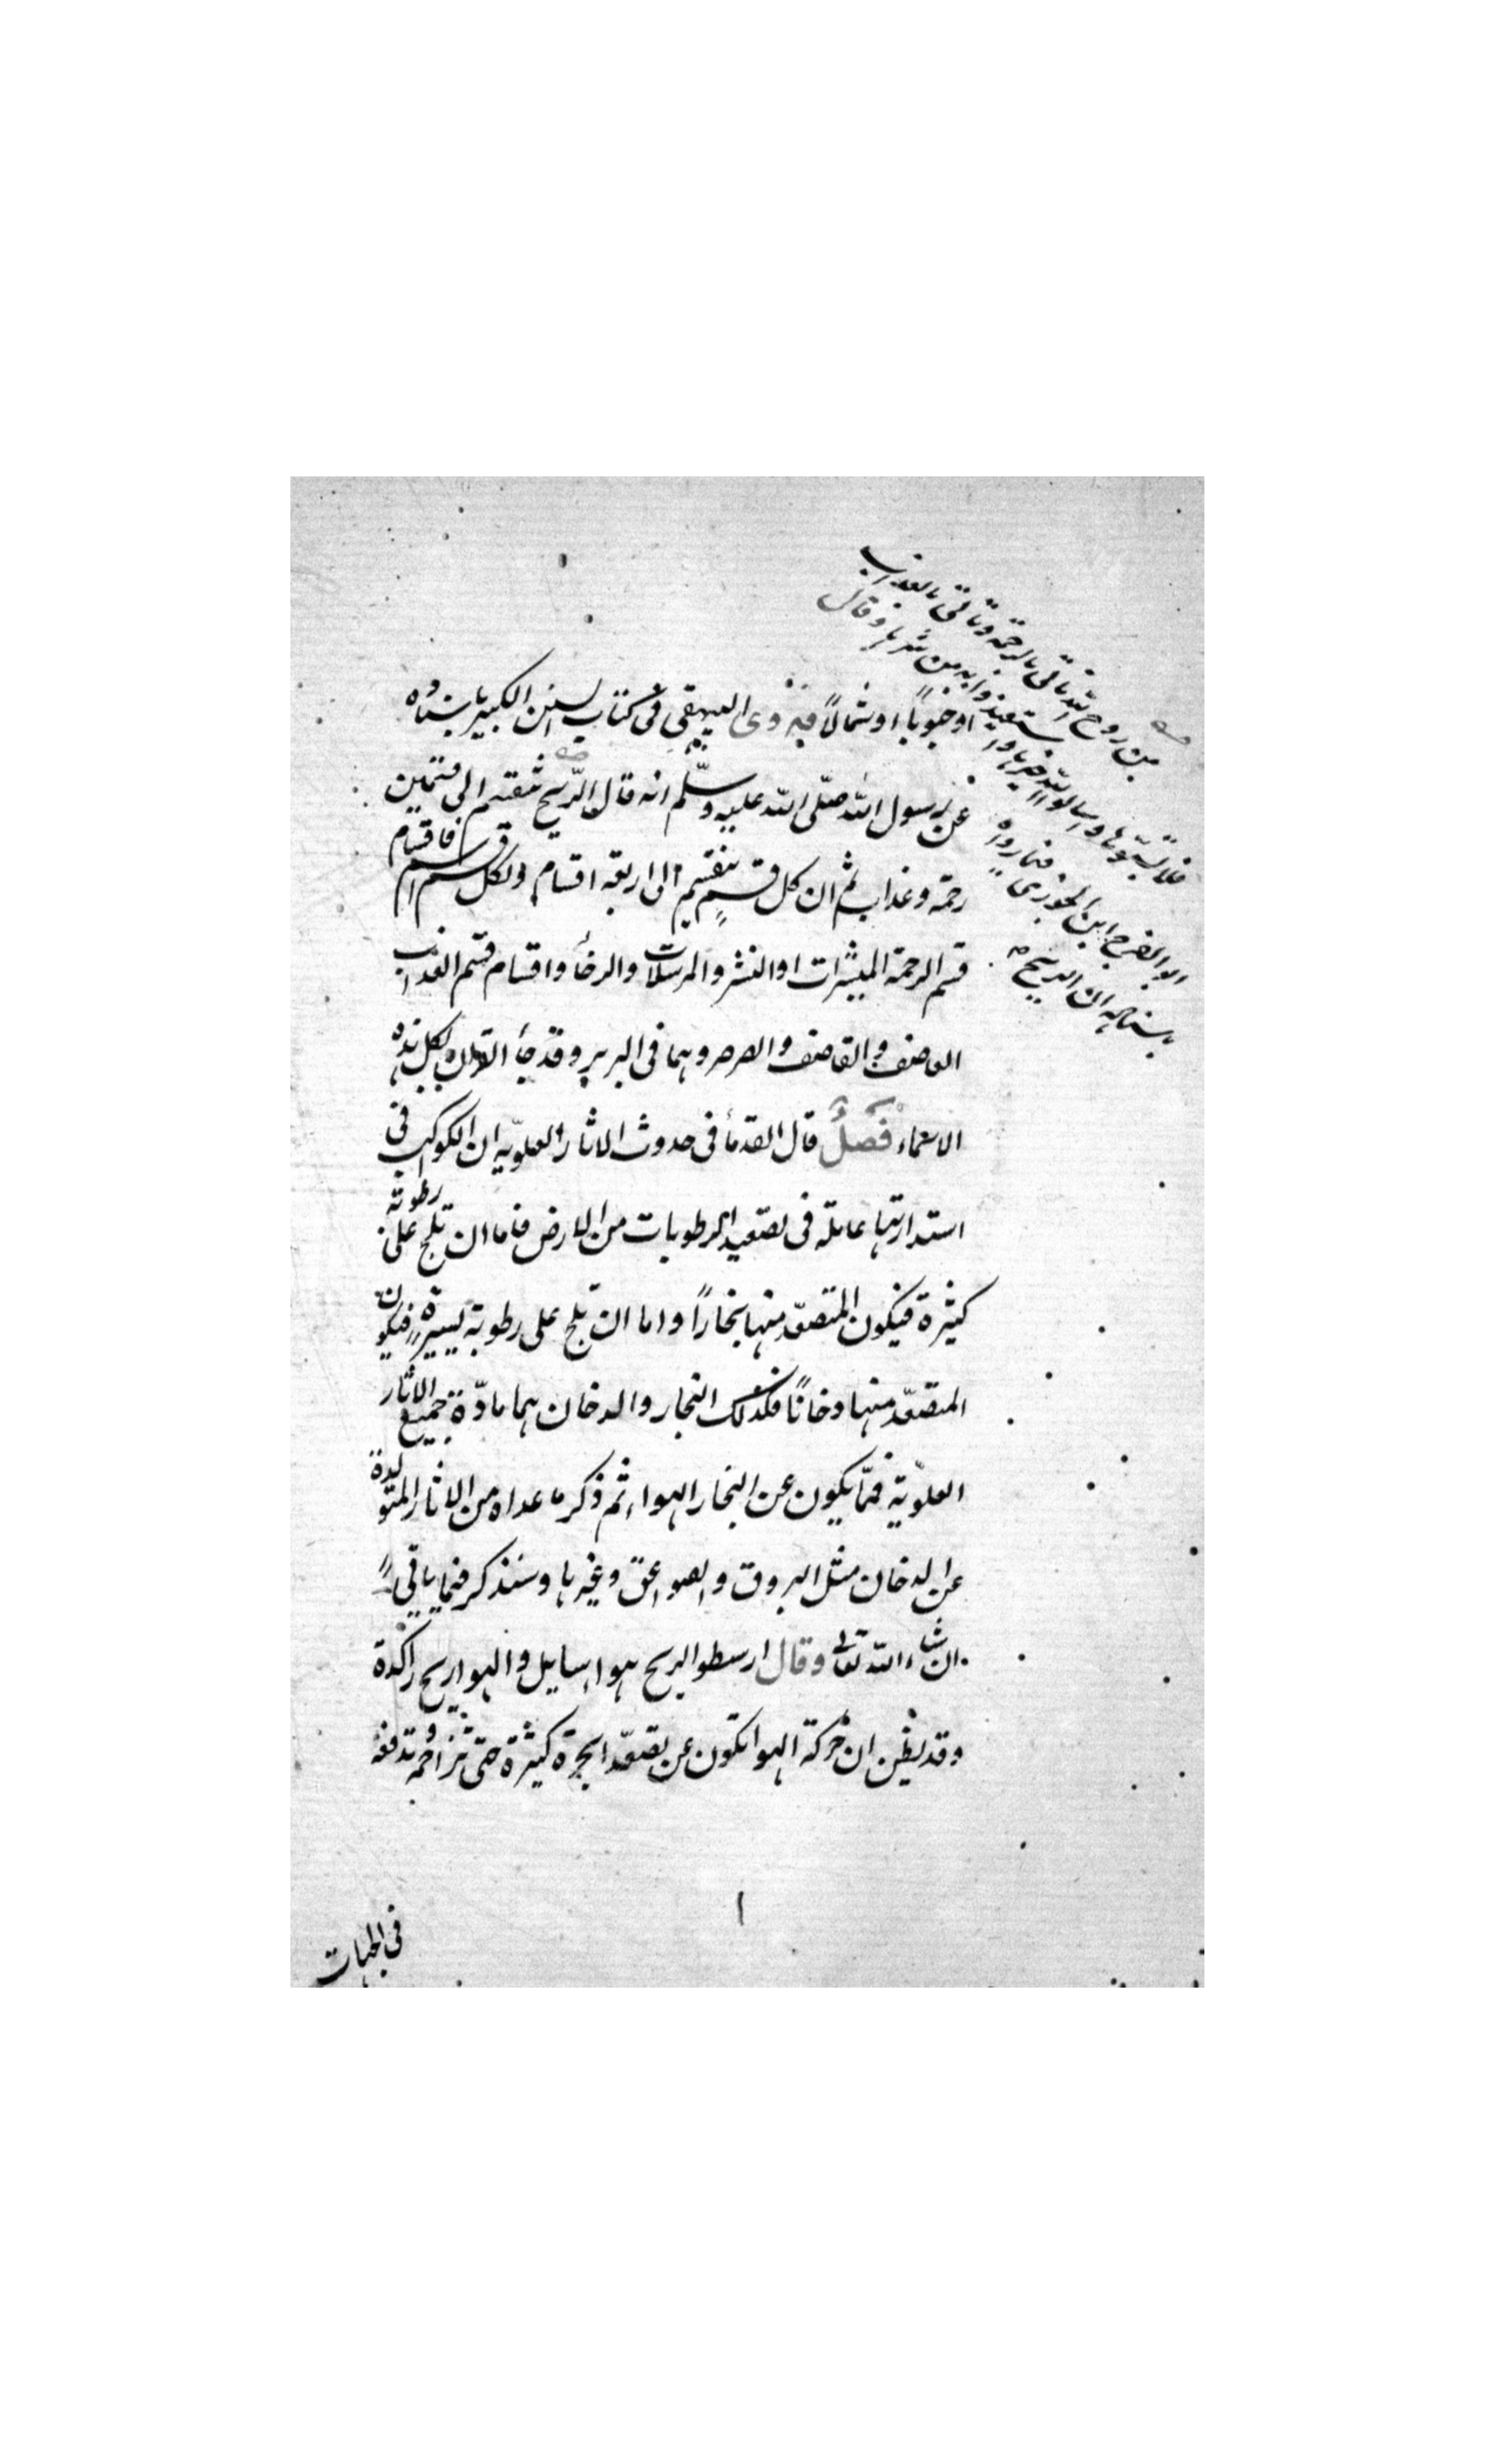 من روح الله تاتى بالرحمة وتاتى بالعذاب
فلا تسبّوها واسالوا الله خيرها واستعيذوا به من شرها وقال
ابو الفرج ابن الجوزى فيما رواه
باسناده ان الريح
او جنوباً او شمالاً فيه روى البيهقى فى كتاب السنن الكبير باسناده
عن رسول الله صلّى الله عليه وسلّم انه قال الرّيح تنقسم الى قسمين
رحمة وعذاب ثم ان كل قسمٍ ينقسم الى اربعة اقسام ولكل قسم اسم فاقسام
قسم الرحمة المبشرات والنشر والمرسلات والرخأ واقسام قسم العذاب
العاصف والقاصف والصرصر وهما فى البر وقد جأ القرآن بكل هذه
الاسماء فصل قال القدمأ فى حدوث الاثار العلويّه ان الكواكب فى
استدارتها عاملة فى تصعيد الرطوبات من الارض فاما ان تلج على رطوبة
كثيرة فيكون المتصعّد منها بخاراً واما ان تلج على رطوبة يسيرة فيكون
المتصعّد منها دخاناً فكذلك البخار والدخان هما مادّة جميع الاثار
العلويّة فممّا يكون عن البخار الهواء ثم ذكر ما عداه من الاثار المتولدة
عن الدخان مثل البروق والصواعق وغيرها وسنذكر فيما ياتى
ان شاء الله تعالى وقال ارسطو الريح هوا سايل والهوا ريح راكدة
وقد يظن ان حركة الهوا تكون عن تصعّد ابخرة كثيرة حتى تزاحمه وتدفعه
ا
فى الجهات